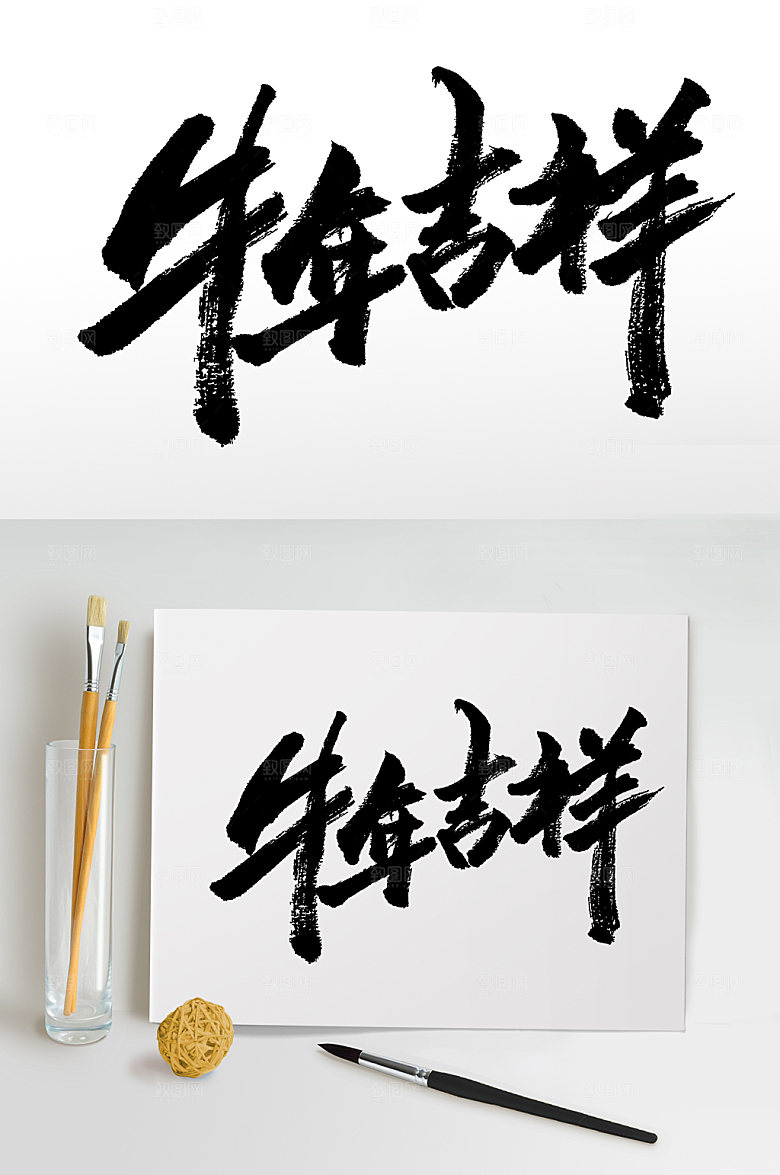 牛年吉祥
牛年吉祥